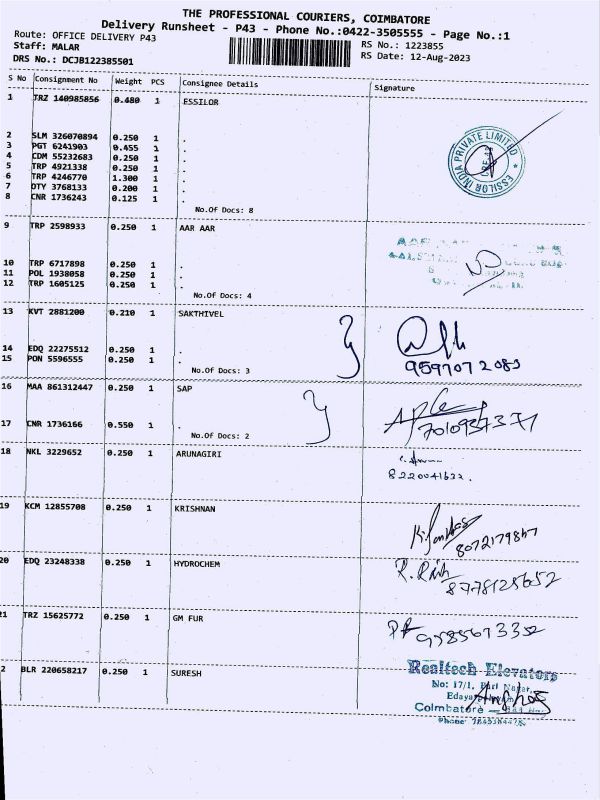 THE PROFESSIONAL COURIERS, COIMBATORE
Delivery Runsheet - P43 - Phone No.:0422-3505555 - Page No.:1
Route: OFFICE DELIVERY P43
Staff: MALAR
DRS No.: DCJB122385501
RS No.: 1223855
RS Date: 12-Aug-2023
S No Consignment No Weight PCS Consignee Details Signature
1 TRZ 140985856 0.480 1 ESSILOR
2 SLM 326070894 0.250 1 .
3 PGT 6241903 0.455 1 .
4 CDM 55232683 0.250 1 .
5 TRP 4921338 0.250 1 .
6 TRP 4246770 1.300 1 .
7 DTY 3768133 0.200 1 .
8 CNR 1736243 0.125 1 .
No.Of Docs: 8
ESSILOR INDIA PRIVATE LIMITED
9 TRP 2598933 0.250 1 AAR AAR
10 TRP 6717898 0.250 1 .
11 POL 1938058 0.250 1 .
12 TRP 1605125 0.250 1 .
No.Of Docs: 4
13 KVT 2881200 0.210 1 SAKTHIVEL
14 EDQ 22275512 0.250 1 .
15 PON 5596555 0.250 1 .
No.Of Docs: 3
9597072083
16 MAA 861312447 0.250 1 SAP
17 CNR 1736166 0.550 1 .
No.Of Docs: 2
18 NKL 3229652 0.250 1 ARUNAGIRI
19 KCM 12855708 0.250 1 KRISHNAN
20 EDQ 23248338 0.250 1 HYDROCHEM
8778125652
21 TRZ 15625772 0.250 1 GM FUR
9585673352
2 BLR 220658217 0.250 1 SURESH
Realtech Elevators
No: 17/1,
Coimbatore
Phone: